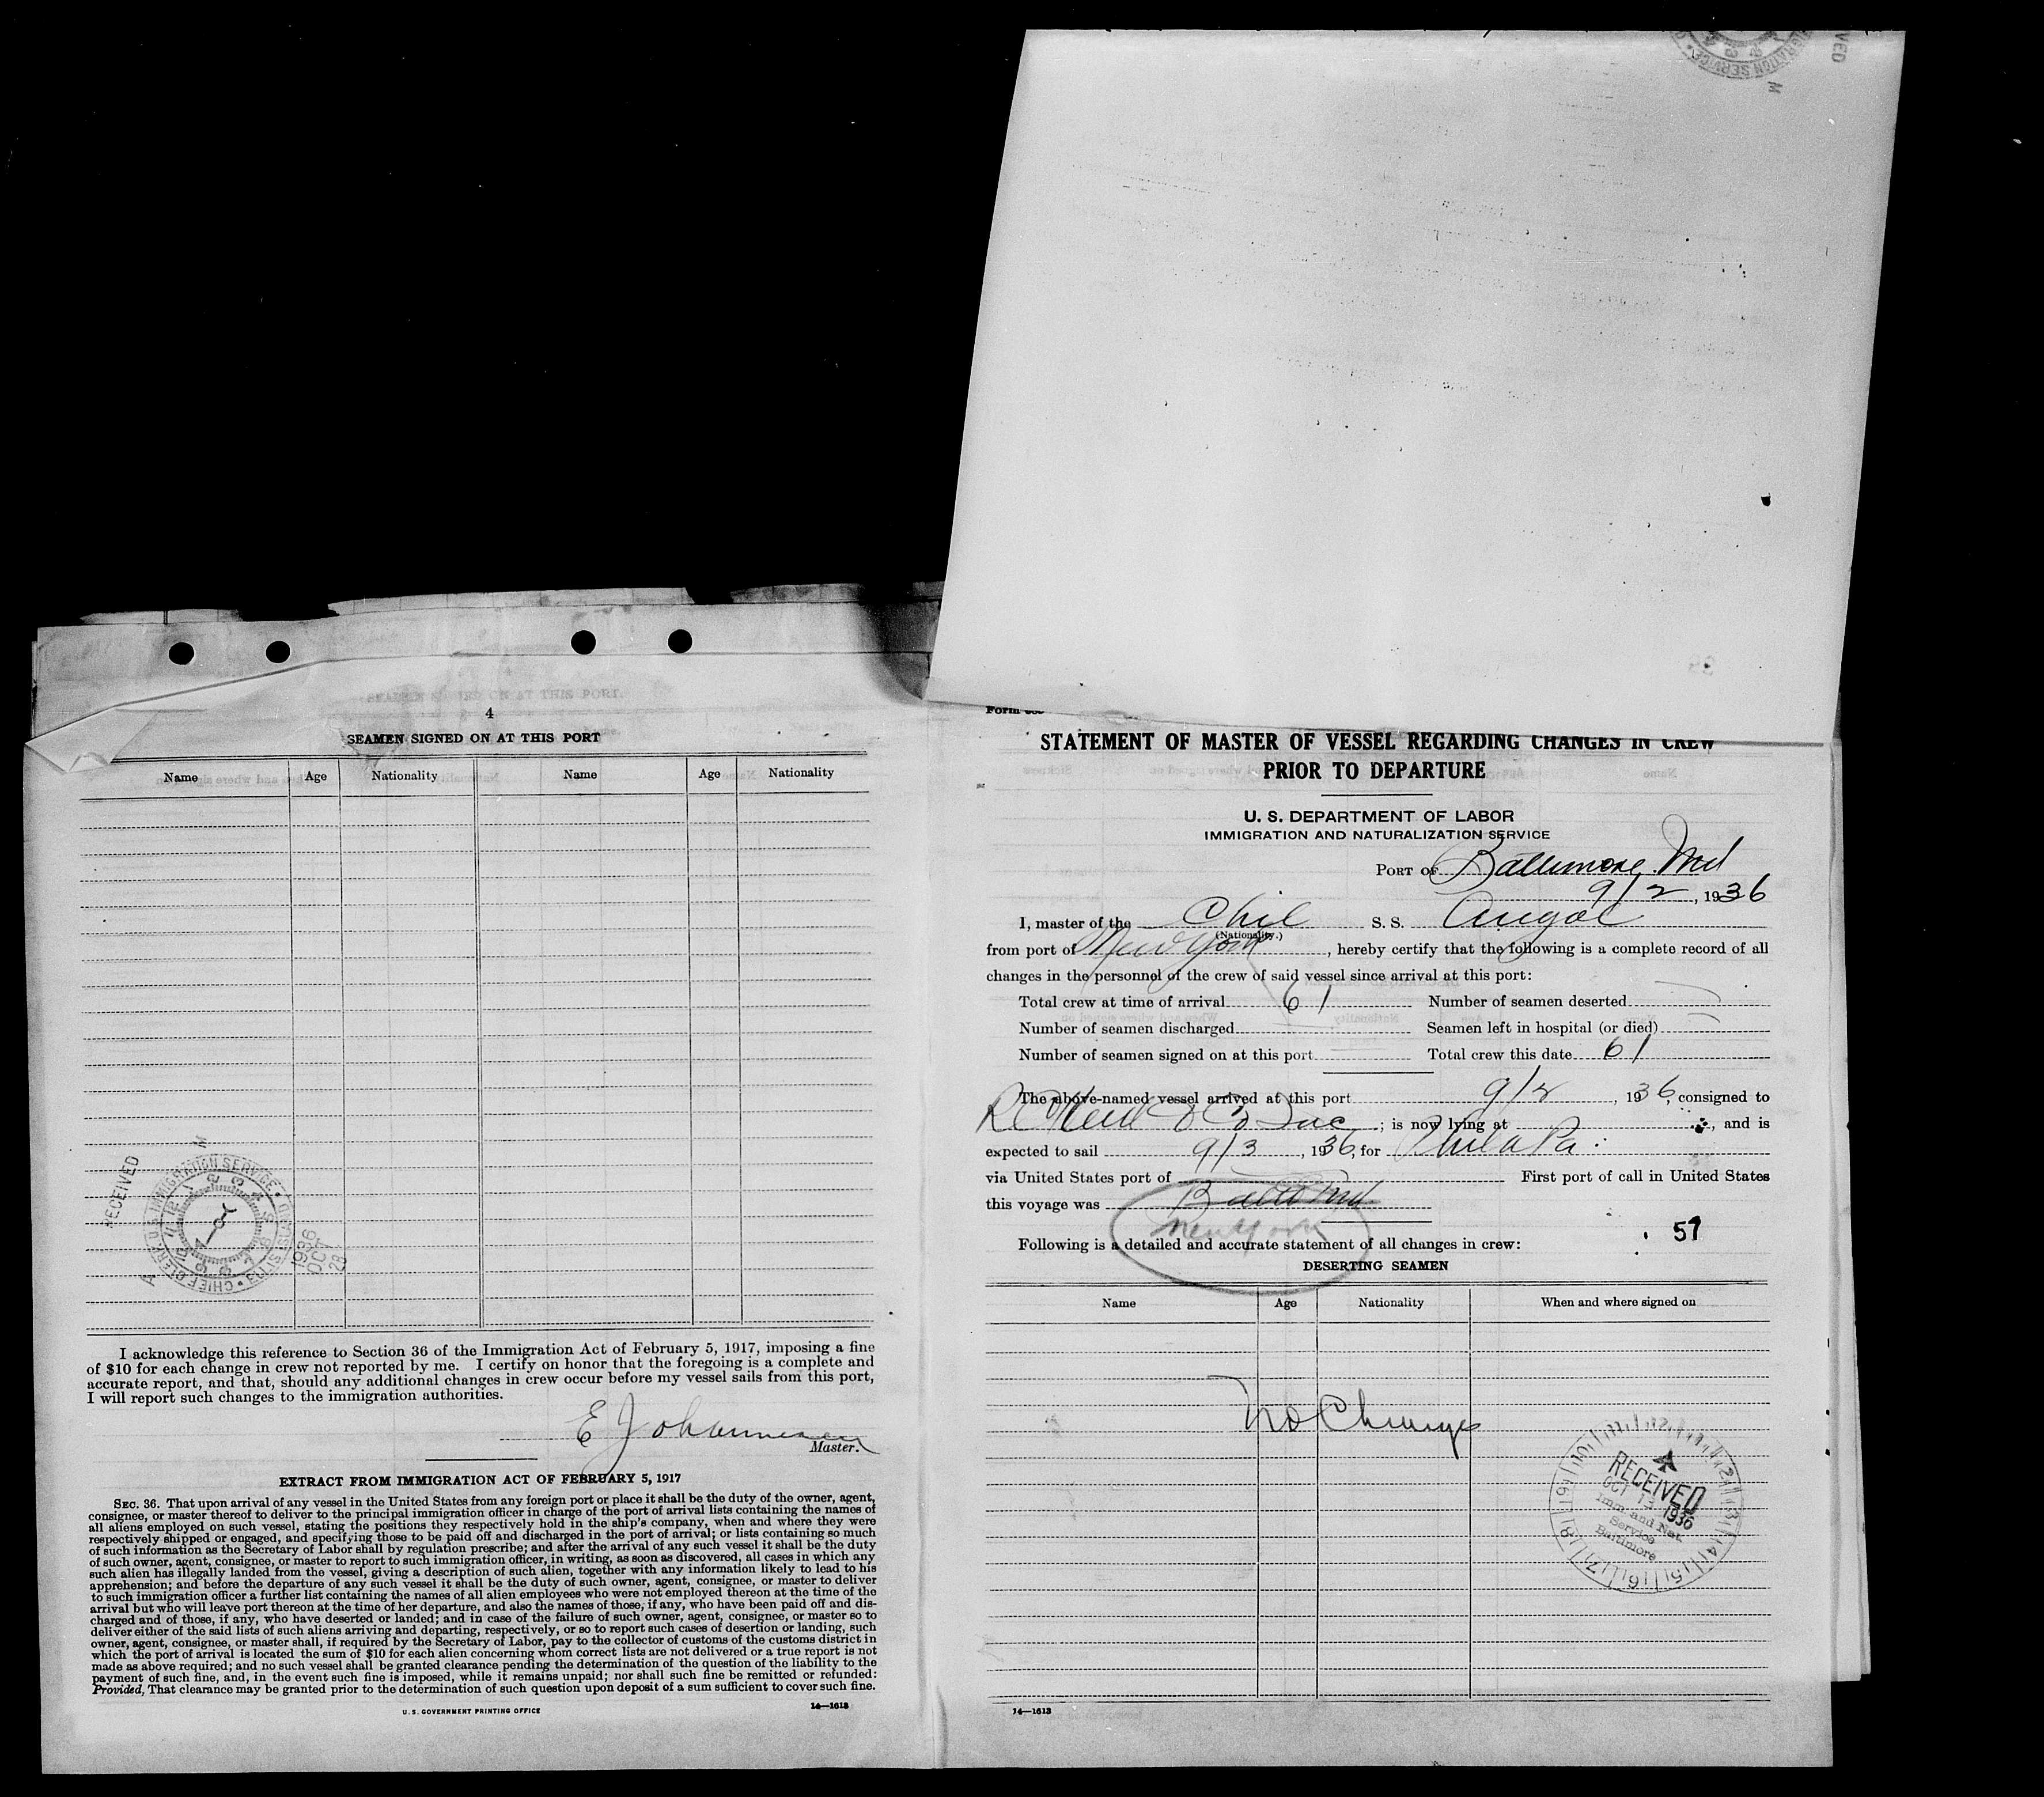 4
SEAMEN SIGNED ON AT THIS PORT
Name Age Nationality Name Age Nationality
RECEIVED
CHIEF CLERK U.S. IMMIGRATION SERVICE • ELLIS ISLAND •
1936
OCT
28
I acknowledge this reference to Section 36 of the Immigration Act of February 5, 1917, imposing a fine
of $10 for each change in crew not reported by me. I certify on honor that the foregoing is a complete and
accurate report, and that, should any additional changes in crew occur before my vessel sails from this port,
I will report such changes to the immigration authorities.
E Johannesen
Master.
EXTRACT FROM IMMIGRATION ACT OF FEBRUARY 5, 1917
SEC. 36. That upon arrival of any vessel in the United States from any foreign port or place it shall be the duty of the owner, agent,
consignee, or master thereof to deliver to the principal immigration officer in charge of the port of arrival lists containing the names of
all aliens employed on such vessel, stating the positions they respectively hold in the ship's company, when and where they were
respectively shipped or engaged, and specifying those to be paid off and discharged in the port of arrival; or lists containing so much
of such information as the Secretary of Labor shall by regulation prescribe; and after the arrival of any such vessel it shall be the duty
of such owner, agent, consignee, or master to report to such immigration officer, in writing, as soon as discovered, all cases in which any
such alien has illegally landed from the vessel, giving a description of such alien, together with any information likely to lead to his
apprehension; and before the departure of any such vessel it shall be the duty of such owner, agent, consignee, or master to deliver
to such immigration officer a further list containing the names of all alien employees who were not employed thereon at the time of the
arrival but who will leave port thereon at the time of her departure, and also the names of those, if any, who have been paid off and dis-
charged and of those, if any, who have deserted or landed; and in case of the failure of such owner, agent, consignee, or master so to
deliver either of the said lists of such aliens arriving and departing, respectively, or so to report such cases of desertion or landing, such
owner, agent, consignee, or master shall, if required by the Secretary of Labor, pay to the collector of customs of the customs district in
which the port of arrival is located the sum of $10 for each alien concerning whom correct lists are not delivered or a true report is not
made as above required; and no such vessel shall be granted clearance pending the determination of the question of the liability to the
payment of such fine, and, in the event such fine is imposed, while it remains unpaid; nor shall such fine be remitted or refunded:
Provided, That clearance may be granted prior to the determination of such question upon deposit of a sum sufficient to cover such fine.
U. S. GOVERNMENT PRINTING OFFICE 14—1613
Form
STATEMENT OF MASTER OF VESSEL REGARDING CHANGES IN CREW
PRIOR TO DEPARTURE
U. S. DEPARTMENT OF LABOR
IMMIGRATION AND NATURALIZATION SERVICE
PORT OF Baltimore Md
9/2, 1936
I, master of the Chil S. S. Angol
(Nationality.)
from port of New York, hereby certify that the following is a complete record of all
changes in the personnel of the crew of said vessel since arrival at this port:
Total crew at time of arrival 61 Number of seamen deserted
Number of seamen discharged Seamen left in hospital (or died)
Number of seamen signed on at this port Total crew this date 61
The above-named vessel arrived at this port 9/2, 1936, consigned to
& Co Inc; is now lying at , and is
expected to sail 9/3, 1936, for Phila Pa
via United States port of First port of call in United States
this voyage was Balto Md.
New York
57
Following is a detailed and accurate statement of all changes in crew:
DESERTING SEAMEN
Name Age Nationality When and where signed on
No Change
RECEIVED
OCT 13 1936
Imm and Nat.
Service
Baltimore
14—1613